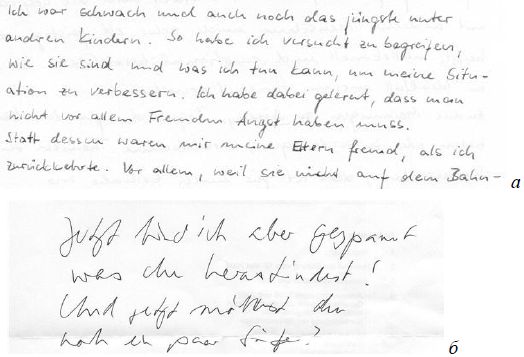 Ich war schwach und auch noch das jüngste unter
anderen Kindern. So habe ich versucht zu begreifen,
wie sie sind und was ich tun kann, um meine Situ-
ation zu verbessern. Ich habe dabei gelernt, dass man
nicht vor allem Fremden Angst haben muss.
Statt dessen waren mir meine Eltern fremd, als ich
zurückkehrte. Vor allem, weil sie nicht auf dem Bahn-
а
Jetzt bin ich aber gespannt
was du herausfindest!
Und jetzt möchtest du
noch ein paar Sätze?
б